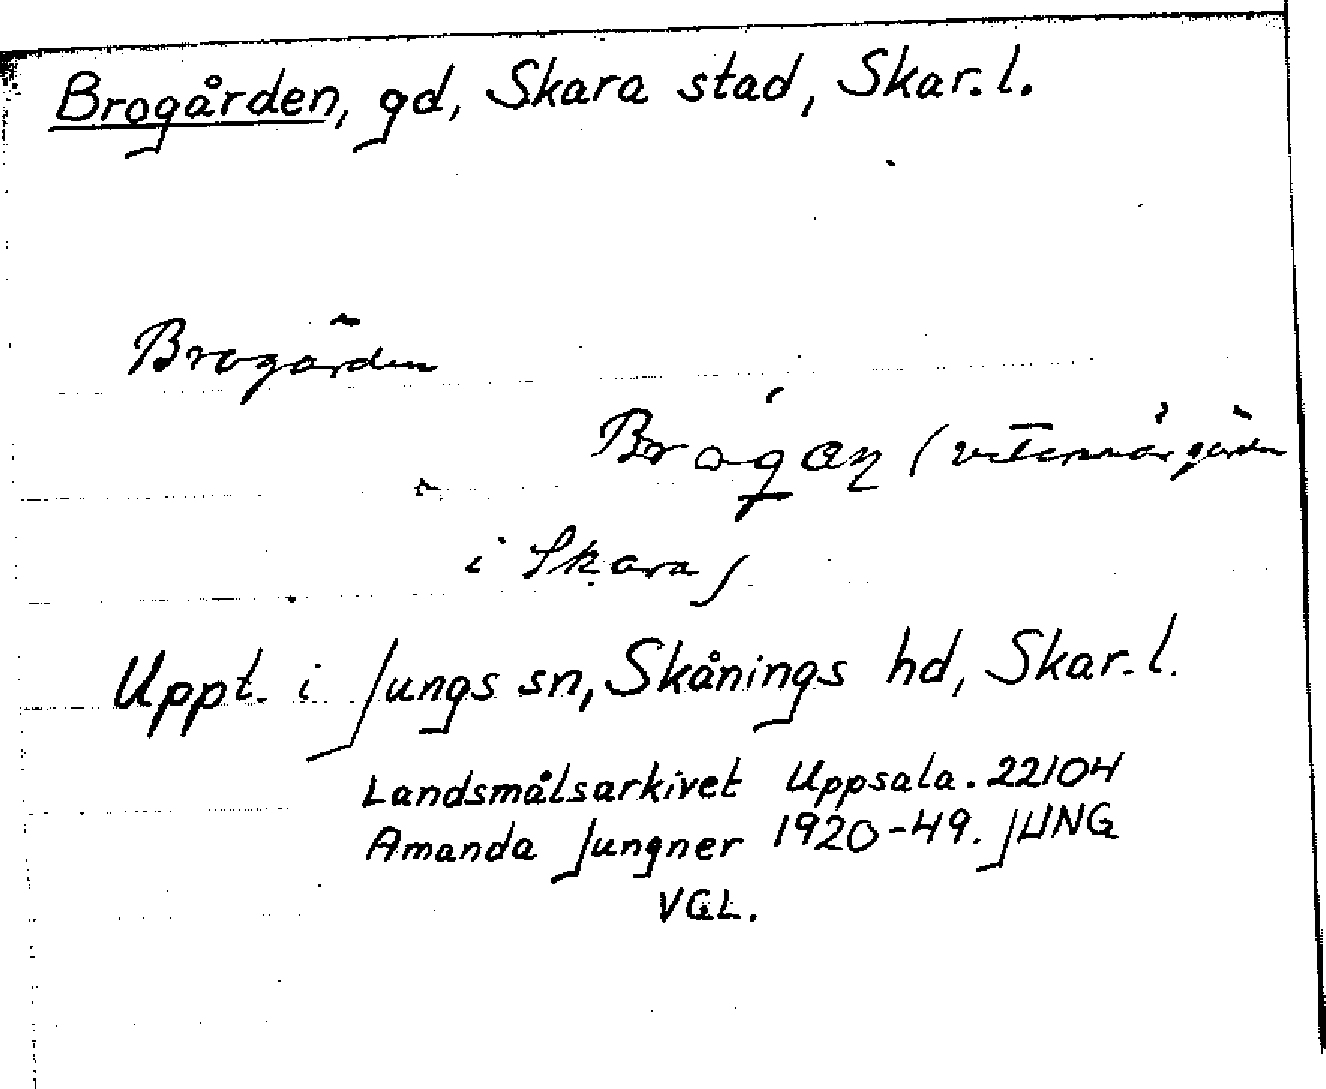 Brogården, gd, Skara stad, Skar. l.
Brogården
(veterinärgården
i Skara)
Uppt. i Jungs sn, Skånings hd, Skar. l.
Landsmålsarkivet Uppsala. 22104
Amanda Jungner 1920-49. JUNG
VGL.